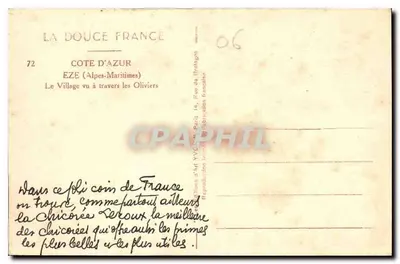 LA DOUCE FRANCE
72
COTE D'AZUR
EZE (Alpes-Maritimes)
Le Village vu à travers les Oliviers
06
CPAPHIL
Dans ce joli coin de France
on trouve, comme partout ailleurs
la Chicorée Leroux, la meilleure
des chicorées qui offre aussi les primes
les plus belles et les plus utiles.